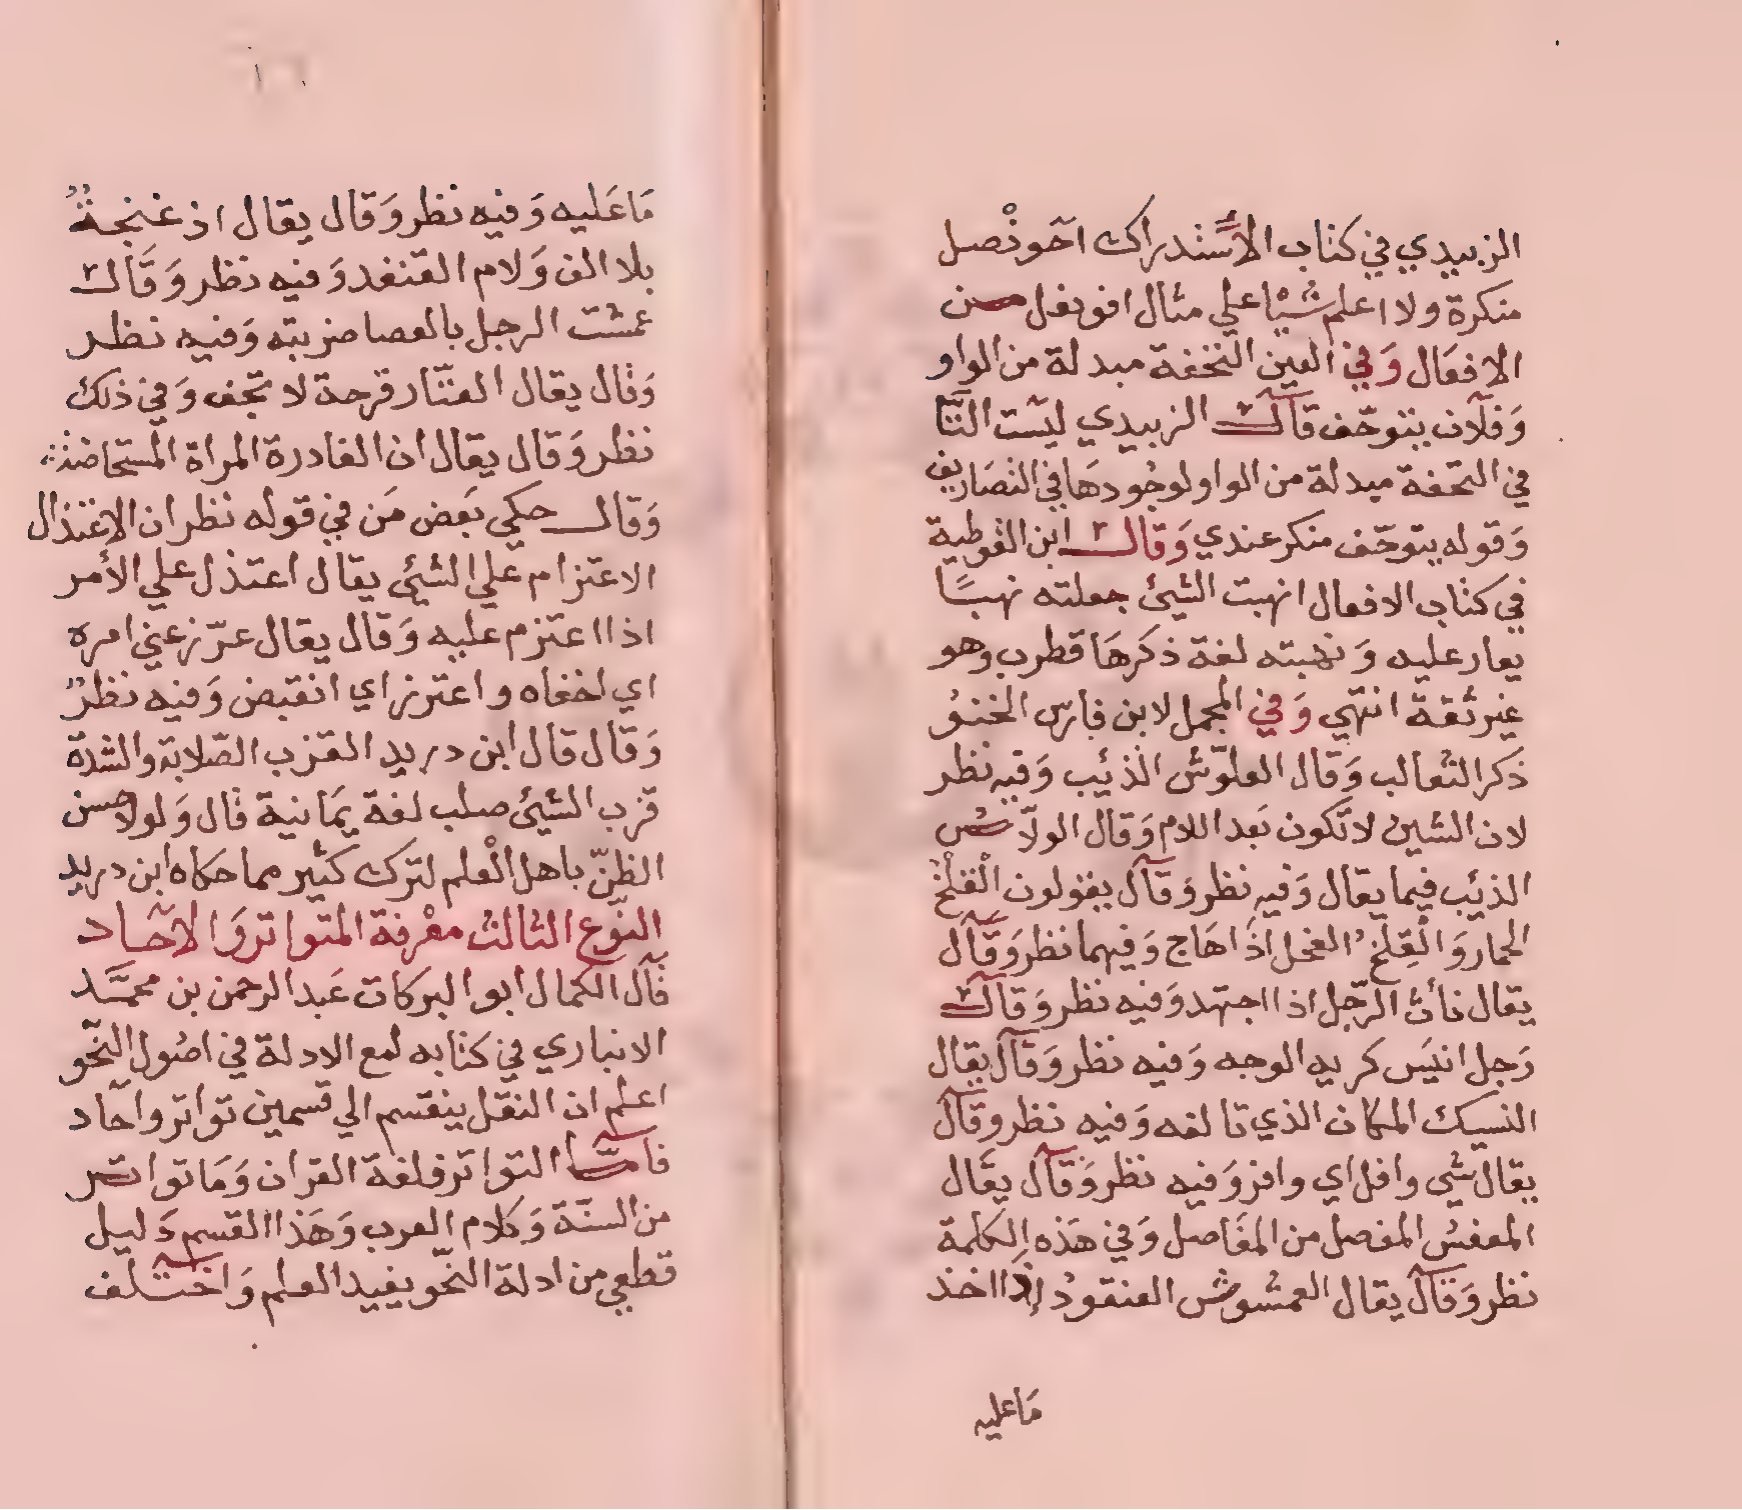 الزبيدي في كتاب الاستدراك احونصل
منكرة ولا اعلم شيئا علي مثال افونعل من
الافعال وَفي العين التخفة مبدلة من الواو
وَفلان يتوحّف قال الزبيدي ليست التَّا
في التحفة مبدلة من الواو لوجُودهَا في التصَاريف
وَقوله يتوحّف منكر عندي وَقال ابن القوطية
في كتاب الافعال انهبت الشيئ جعلته نهبًا
يعار عليه وَنهبته لغة ذكرهَا قطرب وهو
غير ثقة انتهي وَفي المجمل لابن فارس الخنعُ
ذكر الثعالب وَقال العلوّش الذئيب وَفيه نظر
لان الشين لا تكون بَعد اللام وَقال الولّاس
الذئيب فيما يقال وَفيه نظر وَقال يقولون الْقلْخ
الحمار وَالْقِلخُ الفحل اذَا هَاج وَفيهما نظر وَقال
يقال نأت الرّجل اذا اجتهد وَفيه نظر وَقال
رَجل انيَس كريه الوجه وَفيه نظر وَقال يقال
النسيك المكان الذي تالفه وَفيه نظر وقال
يقال شي وافل اي وافر وَفيه نظر وَقال يقَال
المعفسُ المفصل من المفَاصل وَفي هَذه الكلمة
نظر وَقال يقال العمشُوش العنقودُ اذا اخذ
مَا عليه
مَا عَليه وَفيه نظر وَقال يقال اذ غنجةٌ
بلا الف وَلام القنفد وَفيه نظر وَقَال
عمشت الرجل بالعصا ضربته وَفيه نظر
وَقال يقال الغتّار قرحة لا تجف وَفي ذلك
نظر وَقال يقال ان الغادرة المراة المستحاضة
وَقال حكي بَعض مَن في قوله نظر ان الاعتذال
الاعتزام علي الشيئ يقال اعتذل علي الأمر
اذا اعتزم عليه وَقال يقال عرّز عني امره
اي اخفاه واعترز اي انقبض وَفيه نظرٌ
وَقال قال ابن دريد القزب الصّلابة والشدة
قزب الشيئ صلب لغة يمَانية قال وَلولا حسن
الظنّ باهل الْعلم لترك كثير مما حكاه ابن دريد
النّوع الثالث معْرفة المتواتر وَالاحاد
قال الكمال ابو البركات عَبد الرحمن بن محمَّد
الانباري في كتابه لمع الادلة في اصُول النّحو
اعلم ان النقل ينقسم الي قسمين تواتر واحاد
فامّا التواتر فلغة القران وَمَا تواتر
من السنّة وَكلام العرب وَهَذا القسم دَليل
قطعي من ادلة النحو يفيد العلم وَاختلف